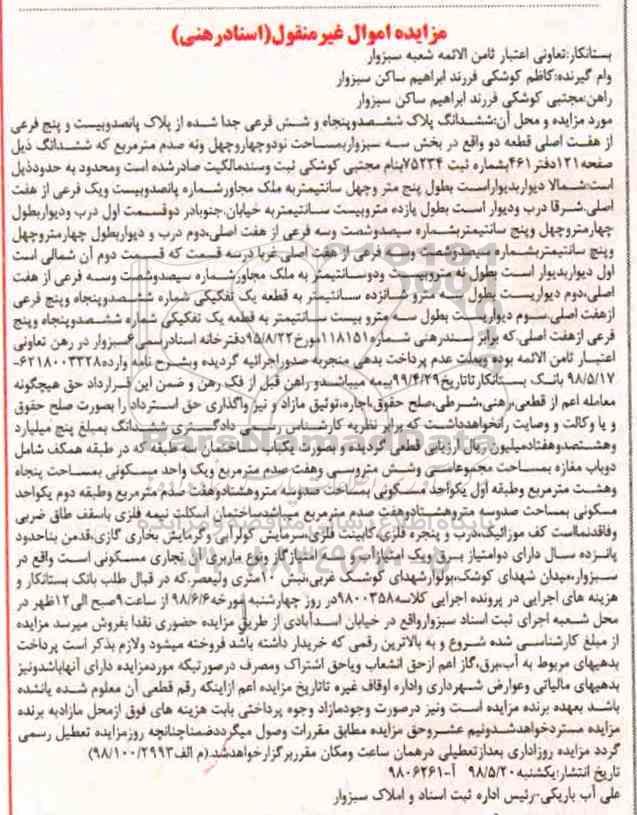 مزایده اموال غیر منقول(اسناد رهنی)
بستانکار:تعاونی اعتبار ثامن الائمه شعبه سبزوار
وام گیرنده:کاظم کوشکی فرزند ابراهیم ساکن سبزوار
راهن:مجتبی کوشکی فرزند ابراهیم ساکن سبزوار
مورد مزایده و محل آن:ششدانگ پلاک ششصدوپنجاه و شش فرعی جدا شده از پلاک پانصدوبیست و پنج فرعی
از هفت اصلی قطعه دو واقع در بخش سه سبزواربمساحت نودوچهاروچهل ونه صدم مترمربع که ششدانگ ذیل
صفحه۱۲۱دفتر۴۶۱بشماره ثبت ۷۵۲۳۴بنام مجتبی کوشکی ثبت وسندمالکیت صادرشده است ومحدود به حدودذیل
است:شمالا دیواربدیواراست بطول پنج متر وچهل سانتیمتربه ملک مجاورشماره پانصدوبیست ویک فرعی از هفت
اصلی.شرقا درب ودیوار است بطول یازده متروبیست سانتیمتربه خیابان.جنوبادر دوقسمت اول درب ودیواربطول
چهارمتروچهل وپنج سانتیمتربشماره سیصدوشصت وسه فرعی از هفت اصلی،دوم درب و دیواربطول چهارمتروچهل
وپنج سانتیمتربشماره سیصدوشصت وسه فرعی از هفت اصلی.غربا درسه قسمت که قسمت دوم آن شمالی است
اول دیواربدیوار است بطول نه متروبیست ودوسانتیمتر به ملک مجاورشماره سیصدوشصت وسه فرعی از هفت
اصلی،دوم دیواریست بطول سه مترو شانزده سانتیمتر به قطعه یک تفکیکی شماره ششصدوپنجاه وپنج فرعی
ازهفت اصلی،سوم دیواریست بطول سه مترو بیست سانتیمتر به قطعه یک تفکیکی شماره ششصدوپنجاه وپنج
فرعی ازهفت اصلی.که برابر سندرهنی شماره۱۱۸۱۵۱مورخ۹۵/۸/۲۲دفترخانه اسنادرسمی۶سبزوار در رهن تعاونی
اعتبار ثامن الائمه بوده وبعلت عدم پرداخت بدهی منجربه صدوراجرائیه گردیده وبشرح نامه وارده۶۲۱۸۰۰۳۳۲۸-
۹۸/۵/۱۷ بانک بستانکارتاتاریخ۹۹/۴/۲۹بیمه میباشدو راهن قبل از فک رهن و ضمن این قرارداد حق هیچگونه
معامله اعم از قطعی،رهنی،شرطی،صلح حقوق،اجاره،توثیق مازاد و نیز واگذاری حق استرداد را بصورت صلح حقوق
و یا وکالت و وصایت رانخواهدداشت که برابر نظریه کارشناس رسمی دادگستری ششدانگ بمبلغ پنج میلیارد
وهشتصدوهفتادمیلیون ریال ارزیابی قطعی گردیده و بصورت یکباب ساختمان سه طبقه که در طبقه همکف شامل
دوباب مغازه بمساحت مجموعاسی وشش متروسی وهفت صدم مترمربع ویک واحد مسکونی بمساحت پنجاه
وهشت مترمربع وطبقه اول یکواحد مسکونی بمساحت صدوسه متروهشتادوهفت صدم مترمربع وطبقه دوم یکواحد
مسکونی بمساحت صدوسه متروهشتادوهفت صدم مترمربع میباشدساختمان اسکلت نیمه فلزی باسقف طاق ضربی
وفاقدنماست کف موزائیک،درب و پنجره فلزی،کابینت فلزی،سرمایش کولرآبی وگرمایش بخاری گازی،قدمن بناحدود
پانزده سال دارای دوامتیاز برق ویک امتیازآب ویک امتیازگاز ونوع کاربری آن تجاری مسکونی است واقع در
سبزوار،میدان شهدای کوشک،بولوارشهدای کوشک غربی،نبش ۱۰متری ولیعصر.که در قبال طلب بانک بستانکار و
هزینه های اجرایی در پرونده اجرایی کلاسه۹۸۰۰۳۵۸در روز چهارشنبه مورخه۹۸/۶/۶ از ساعت۹صبح الی۱۲ظهر در
محل شعبه اجرای ثبت اسناد سبزوارواقع در خیابان اسدآبادی از طریق مزایده حضوری نقدا بفروش میرسد مزایده
از مبلغ کارشناسی شده شروع و به بالاترین رقمی که خریدار داشته باشد فروخته میشود ولازم بذکر است پرداخت
بدهیهای مربوط به آب،برق،گاز اعم ازحق انشعاب ویاحق اشتراک ومصرف درصورتیکه موردمزایده دارای آنهاباشدونیز
بدهیهای مالیاتی وعوارض شهرداری واداره اوقاف غیره تاتاریخ مزایده اعم ازاینکه رقم قطعی آن معلوم شده یانشده
باشد بعهده برنده مزایده است ونیز درصورت وجودمازاد وجوه پرداختی بابت هزینه های فوق ازمحل مازادبه برنده
مزایده مستردخواهدشدونیم عشروحق مزایده مطابق مقررات وصول میگرددضمناچنانچه روزمزایده تعطیل رسمی
گردد مزایده روزاداری بعدازتعطیلی درهمان ساعت ومکان مقرربرگزارخواهدشد.(م الف۹۸/۱۰۰/۲۹۹۳)
تاریخ انتشار:یکشنبه۹۸/۵/۲۰ آ-۹۸۰۶۲۶۱
علی آب باریکی-رئیس اداره ثبت اسناد و املاک سبزوار